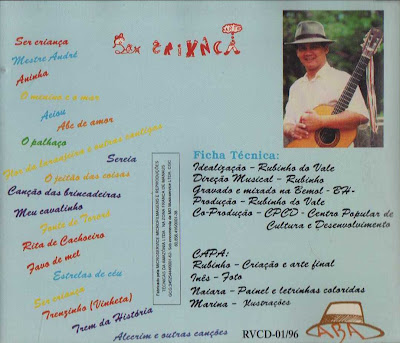 Ser CRIANÇA
Ser criança
Mestre André
Aninha
O menino e o mar
Aeiou
Abc de amor
O palhaço
Flor da laranjeira e outras cantigas
Sereia
O jeitão das coisas
Canção das brincadeiras
Meu cavalinho
Fonte do Tororó
Rita de Cachoeiro
Favo de mel
Estrelas do céu
Ser criança
Trenzinho (Vinheta)
Trem da História
Alecrim e outras canções
Ficha Técnica:
Idealização - Rubinho do Vale
Direção Musical - Rubinho
Gravado e mixado na Bemol - BH-
Produção - Rubinho do Vale
Co-Produção - CPCD - Centro Popular de
Cultura e Desenvolvimento
CAPA:
Rubinho - Criação e arte final
Inês - Foto
Naiara - Painel e letrinhas coloridas
Marina - Ilustrações
RVCD-01/96